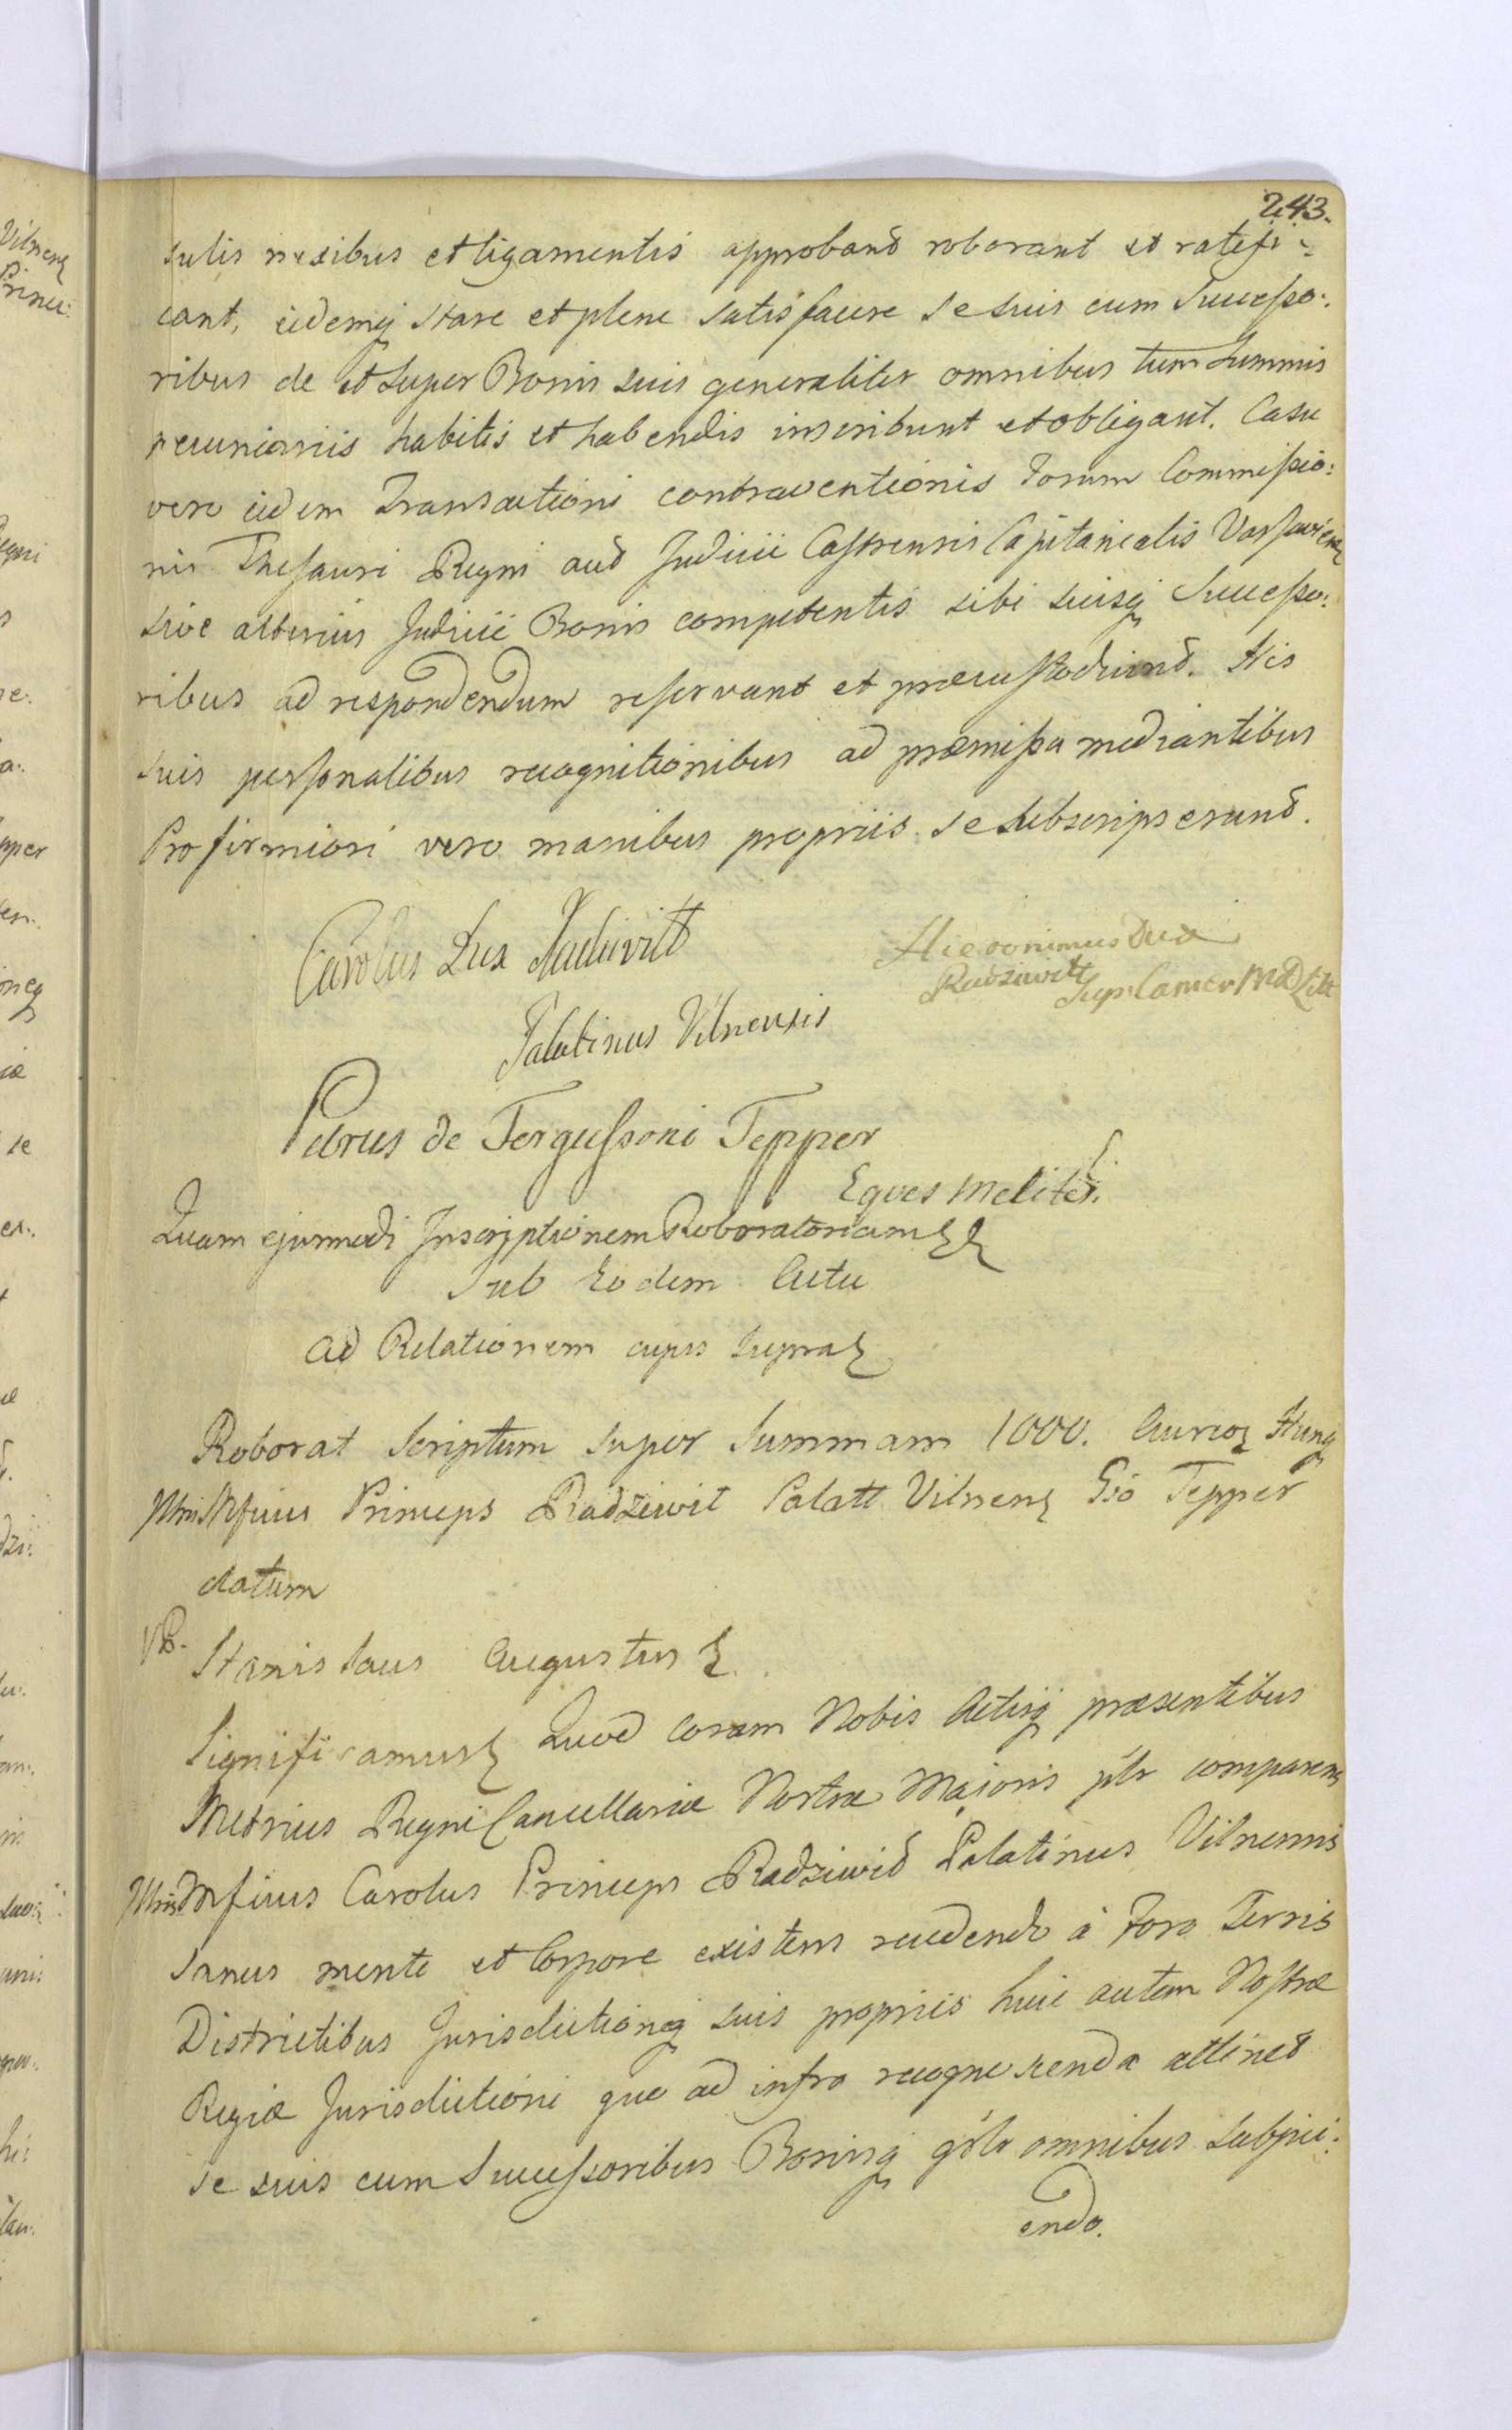 243.
sulis nexibus et ligamentis approband roborant et ratifi-
cant, iidemq stare et plene satisfacere se suis cum Successo:
ribus de et super Bonis suis generaliter omnibus tum Summis
pecuniariis habitis et habendis inscribunt et obligant. Casu
vero iidem Transactioni contraventionis Forum Commissio:
nis Thesauri Regni aud Judicii Castrensis Capitanealis Varsavien
sive alterius Judicii Bonis competentis sibi suisq Successo:
ribus ad respondendum reservant et præcustodiund. His
suis personalibus recognitionibus ad præmissa mediantibus
Pro firmiori vero manibus propriis se subscripserund.
Carolus Dux Radivill
Hieronimus Dux
Radziwill
Sup: Camer MD Litt
Palatinus Vilnensis
Petrus de Fergussoni Tepper
Eques Melites.
Quam ejusmodi Inscriptionem Roboratoriam
Sub Eodem Actu
Ad Relationem cujus supra
Roborat Scriptum super Summam 1000. Aureos Hung
Princeps Radziwil Palatt Vilnens Gso Tepper
datum
Stanislaus Augustus
Significamus Quod coram Nobis Actisq præsentibus
Metrices Regni Cancellariæ Nostræ Majoris plr comparens
Carolus Princeps Radziwid Palatinus Vilnensis
sanus mente et Corpore existens recedendo à Foro Terris
Districtibus Jurisdictionq suis propriis huic autem Nostræ
Regiæ Jurisdictioni quo ad infra recognoscenda attined
se suis cum Successoribus Bonisq gnlr omnibus subjici:
endo.